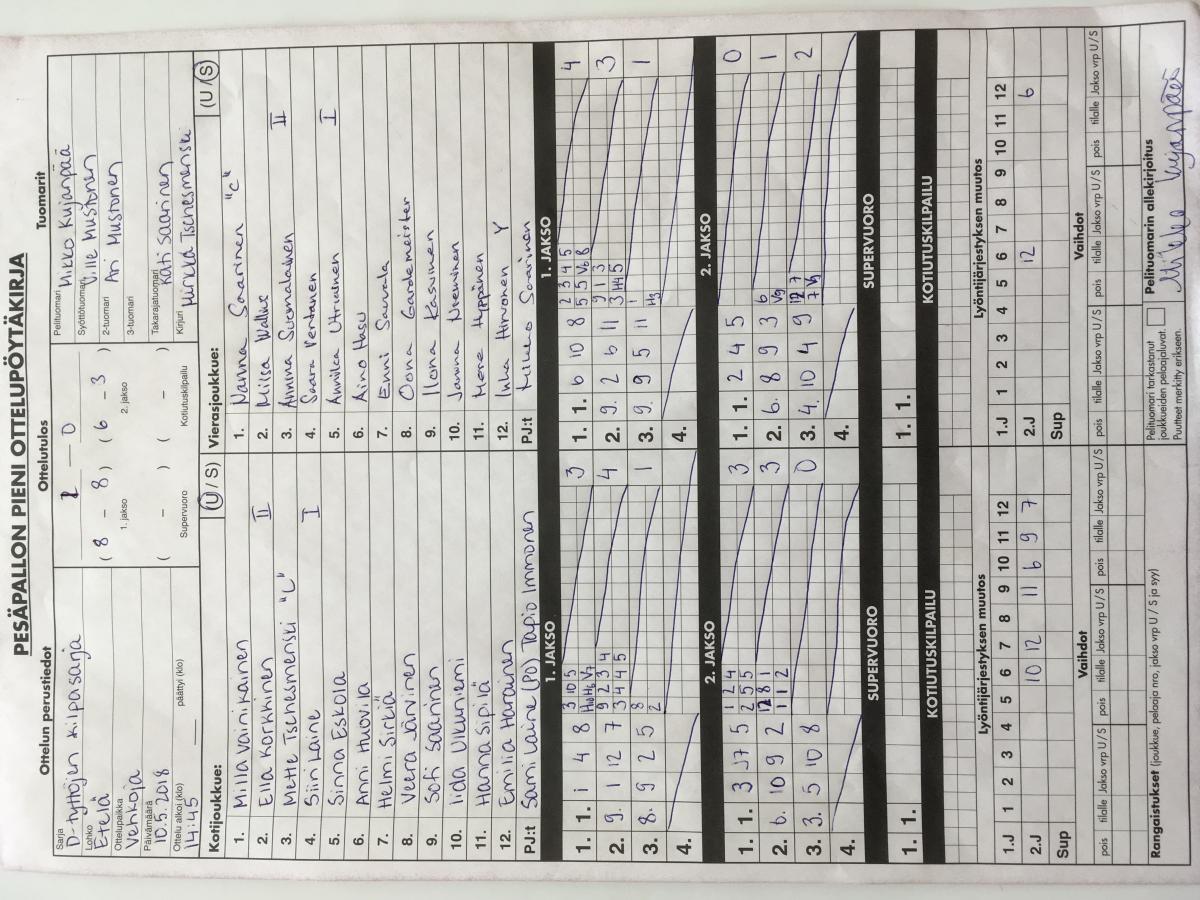 PESÄPALLON PIENI OTTELUPÖYTÄKIRJA
Ottelun perustiedot
Ottelutulos
Tuomarit
Sarja
D-tyttöjen kilpasarja
Lohko
Etelä
Ottelupaikka
Vehkoja
Päivämäärä
10.5.2018
Ottelu alkoi (klo)
14:45
päättyi (klo)
2 - 0
( 8 - 8 ) ( 6 - 3 )
1. jakso 2. jakso
( - ) ( - )
Supervuoro Kotiutuskilpailu
Pelituomari Mikko Kujanpää
Syöttötuomari Ville Mustonen
2-tuomari Ari Mustonen
3-tuomari
Takarajatuomari Kati Saarinen
Kirjuri Mirkka Tschesmenski
Kotijoukkue: (U / S)
1. Milla Vainikainen
2. Ella Korkkinen II
3. Mette Tschesmenski "C"
4. Siiri Laine I
5. Sinna Eskola
6. Anni Huovila
7. Helmi Sirkiä
8. Veera Järvinen
9. Sofi Saarinen
10. Iida Ukuniemi
11. Hanna Sipilä
12. Emilia Harainen
PJ:t Sami Laine (PO) Tapio Immonen
Vierasjoukkue: (U / S)
1. Nanna Saarinen "C"
2. Miisa Wallius
3. Annina Suomalainen II
4. Saara Ventanen
5. Annika Utriainen I
6. Aino Hasu
7. Enni Sauvala
8. Oona Gardemeister
9. Ilona Kasvinen
10. Janina Nieminen
11. Mene Hyppänen
12. Inka Hirvonen Y
PJ:t Mikko Saarinen
1. JAKSO
1. 1. 1 4 8 3 10 5 3
2. 9. 1 12 7 9 2 3 4 3 4 4 5 4
3. 8. 9 2 5 8 2 1
4.
1. JAKSO
1. 1. 6 10 8 2 3 4 5 5 5 V6 8 4
2. 9. 2 6 11 9 1 3 3 H4 5 3
3. 9. 9 5 11 1 H3 1
4.
2. JAKSO
1. 1. 3 J7 5 1 2 4 2 5 5 3
2. 6. 10 9 2 12 8 1 1 1 2 3
3. 3. 5 10 8 0
4.
2. JAKSO
1. 1. 2 4 5 0
2. 6. 8 9 3 6 V9 1
3. 4. 10 4 9 12 7 7 V9 2
4.
SUPERVUORO
1. 1.
SUPERVUORO
1. 1.
KOTIUTUSKILPAILU
KOTIUTUSKILPAILU
Lyöntijärjestyksen muutos
1.J 1 2 3 4 5 6 7 8 9 10 11 12
2.J 10 12 11 6 9 7
Sup
Lyöntijärjestyksen muutos
1.J 1 2 3 4 5 6 7 8 9 10 11 12
2.J 12 6
Sup
Vaihdot
pois tilalle Jakso vrp U/S pois tilalle Jakso vrp U/S pois tilalle Jakso vrp U/S
Vaihdot
pois tilalle Jakso vrp U/S pois tilalle Jakso vrp U/S pois tilalle Jakso vrp U/S
Rangaistukset (joukkue, pelaaja nro, jakso vrp U / S ja syy)
Pelituomari tarkastanut
joukkueiden pelaajaluvat.
Puutteet merkitty erikseen.
Pelituomarin allekirjoitus
Mikko Kujanpää